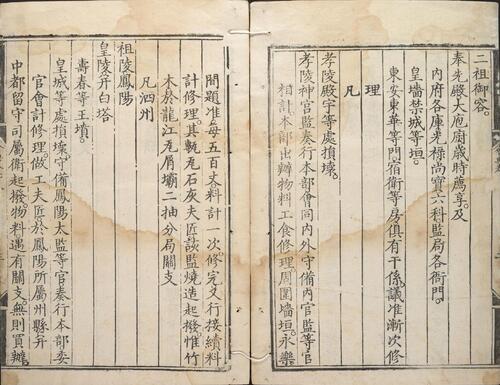 二祖御容。
奉先殿大庖廚歲時薦享。及
內府各庫光祿尚寶六科監局各衙門。
皇墻禁城等垣。
東安東華等門。宿衛等房。俱有干係。議准漸次修
理
凡
孝陵殿宇等處損壞。
孝陵神宮監奏行本部。會同內外守備內官監等官
相計。本部出辦物料工食修理。周圍墻垣。永樂
間題准每五百丈料計一次。修完又行接續料
計修理。其甎瓦石灰夫匠。該監燒造起撥。惟竹
木於龍江瓦屑壩二抽分局關支
凡泗州
祖陵鳳陽
皇陵并白塔
壽春等王墳。
皇城等處損壞。守備鳳陽太監等官奏行本部。委
官會計修理。做工夫匠於鳳陽所屬州縣并
中都留守司屬衛起撥。物料遇有關支。無則買辦。